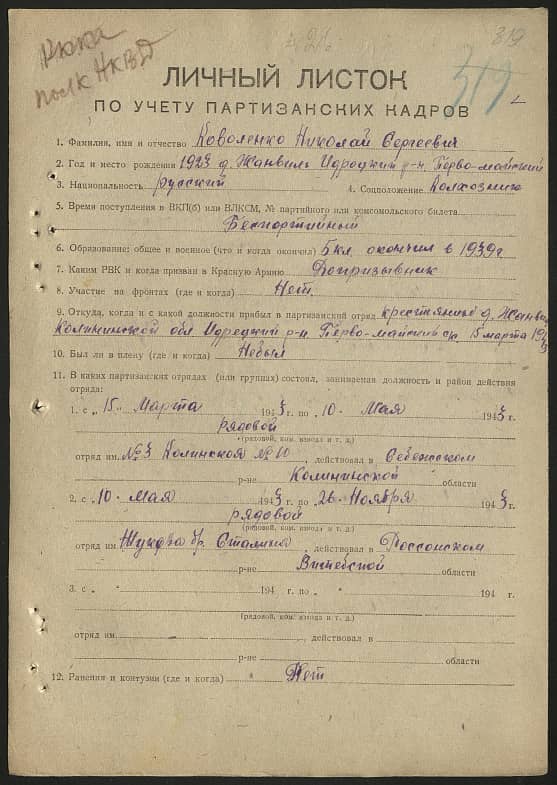 319
полк НКВД
319
ЛИЧНЫЙ ЛИСТОК
ПО УЧЕТУ ПАРТИЗАНСКИХ КАДРОВ
1. Фамилия, имя и отчество Коваленко Николай Сергеевич
2. Год и место рождения 1923 д. Жанвиль Идрицкий р-н. Перво-майский
3. Национальность Русский 4. Соцположение Колхозник
5. Время поступления в ВКП(б) или ВЛКСМ, № партийного или комсомольского билета
Беспартийный
6. Образование: общее и военное (что и когда окончил) 5 кл. окончил в 1939г
7. Каким РВК и когда призван в Красную Армию Допризывник
8. Участие на фронтах (где и когда) Нет.
9. Откуда, когда и с какой должности прибыл в партизанский отряд крестьянин д.
Калининской обл Идрецкий р-н. Перво-майский 15 марта
10. Был ли в плену (где и когда) Небыл
11. В каких партизанских отрядах (или группах) состоял, занимаемая должность и район действия
отряда:
1. с „ 15. Марта 1943 г. по „ 10. Мая 1943 г.
рядовой
(рядовой, ком. взвода и т. д.)
отряд им. №3 Калинская №10, действовал в Себежском
р-не Калининской области
2. с „ 10. Мая 1943 г. по „ 26. Ноября 1943 г.
рядовой
(рядовой, ком. взвода и т. д.)
отряд им Жукова бр. Сталина, действовал в Россонском
р-не Витебской области
3. с „ 194 г. по „ 194 г.
(рядовой, ком. взвода и т. д.)
отряд им. , действовал в
р-не области
12. Ранения и контузии (где и когда) Нет